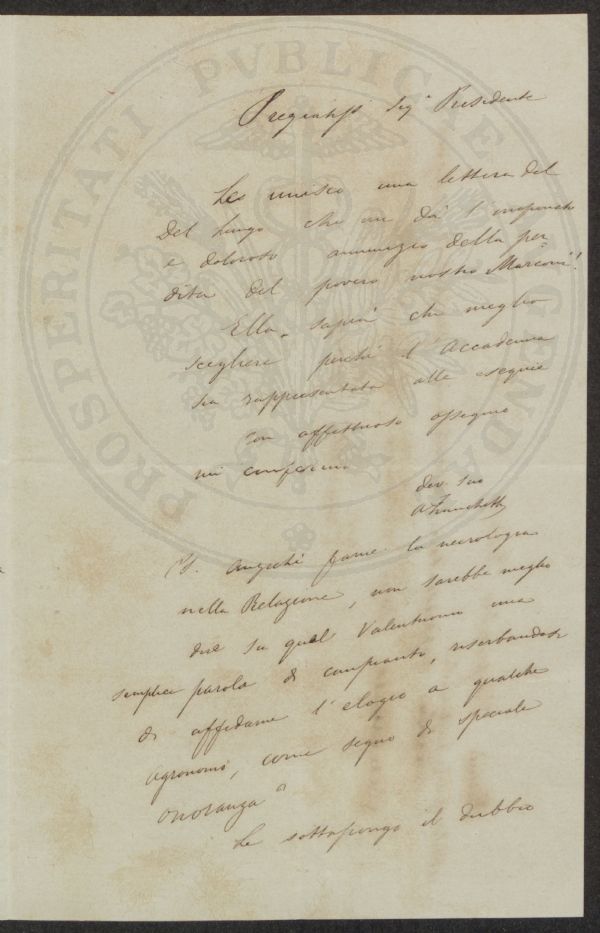 Pregiatiss Sig.r Presidente
Le unisco una lettera del
Del Lungo che mi dà l'inopinato
e doloroso annunzio della per
dita del povero nostro Marconi!
Ella saprà chi meglio
scegliere perché l'Accademia
sia rappresentata alle esequie
Con affettuoso ossequio
mi confermo
dev. suo
A Franchetti
P.S. Anziché farne la necrologia
nella Relazione, non sarebbe meglio
dire su quel Valentuomo una
semplice parola di compianto, riserbandosi
di affidarne l'elogio a qualche
agronomo, come segno di speciale
onoranza?
Le sottopongo il dubbio
PROSPERITATI PVBLICAE AVGENDAE